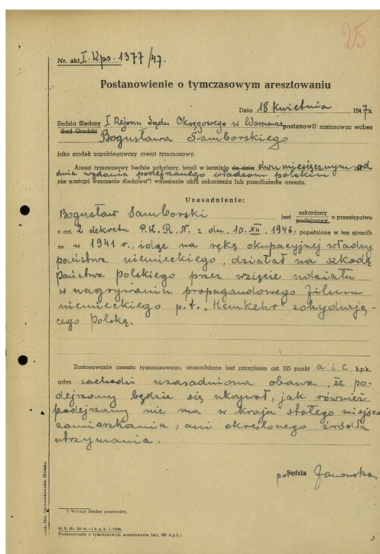 25
Nr. akt I. Kps. 1377/47.
Postanowienie o tymczasowym aresztowaniu
Dnia 18 kwietnia 1947 r.
Sędzia Śledczy I Rejonu Sądu Okręgowego w Warszawie postanowił zastosować wobec
Sąd Grodzki
Bogusława Samborskiego
jako środek zapobiegawczy areszt tymczasowy.
Areszt tymczasowy będzie uchylony, jeżeli w terminie do dnia dwumiesięcznym od
dnia wydania podejrzanego władzom polskim
nie nastąpi wszczęcie śledztwa*) wniesienie aktu oskarżenia lub przedłużenie aresztu.
Uzasadnienie:
Bogusław Samborski jest oskarżony o przestępstwo
podejrzany
z art. 2 dekretu P.K.R.N. z dn. 10.XII 1946. popełnione w ten sposób
że w 1941 r., idąc na rękę okupacyjnej władzy
państwa niemieckiego, działał na szkodę
państwa polskiego przez wzięcie udziału
w nagrywaniu propagandowego filmu
niemieckiego p.t. „Heimkehr" zohydzają-
cego Polskę.
Zastosowanie aresztu tymczasowego, uzasadnione jest przepisem art. 165 punkt a i c k.p.k.
gdyż zachodzi uzasadniona obawa, że po-
dejrzany będzie się ukrywał, jak również
podejrzany nie ma w kraju stałego miejsca
zamieszkania, ani określonego źródła
utrzymania.
Sędzia Janowska
*) Wyrazy zbędne przekreślić.
Postanowienie o tymczasowym aresztowaniu (art. 165 k.p.k.)